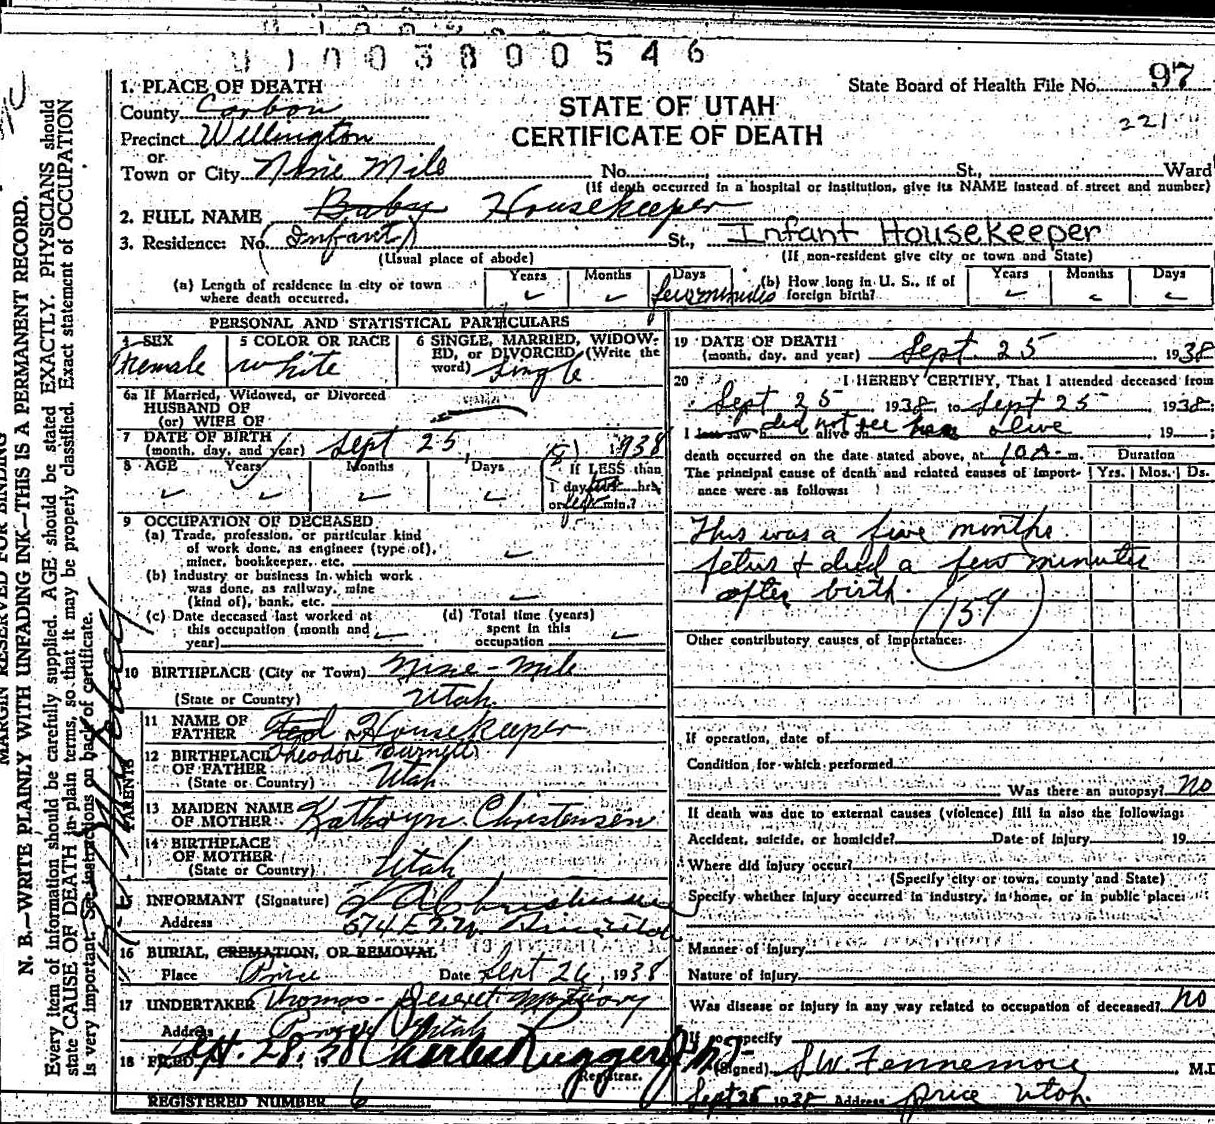 0 1 0 0 3 8 0 0 5 4 6
State Board of Health File No. 97
221
1. PLACE OF DEATH
County Carbon
STATE OF UTAH
Precinct Wellington
CERTIFICATE OF DEATH
or
Town or City Nine Mile No. St., Ward
(If death occurred in a hospital or institution, give its NAME instead of street and number)
2. FULL NAME Baby Housekeeper
3. Residence: No. (Infant) St., Infant Housekeeper
(Usual place of abode) (If non-resident give city or town and State)
(a) Length of residence in city or town where death occurred. Years Months Days few minutes
(b) How long in U. S., if of foreign birth? Years Months Days
PERSONAL AND STATISTICAL PARTICULARS
4 SEX Female
5 COLOR OR RACE white
6 SINGLE, MARRIED, WIDOWED, or DIVORCED (Write the word) Single
6a If Married, Widowed, or Divorced
HUSBAND OF
(or) WIFE OF
7 DATE OF BIRTH (month, day, and year) Sept 25, 1938
8 AGE Years Months Days If LESS than 1 day hrs. or few min.?
9 OCCUPATION OF DECEASED
(a) Trade, profession, or particular kind
of work done, as engineer (type of),
miner, bookkeeper, etc.
(b) Industry or business in which work
was done, as railway, mine
(kind of), bank, etc.
(c) Date deceased last worked at
this occupation (month and
year)
(d) Total time (years)
spent in this
occupation
10 BIRTHPLACE (City or Town) Nine-Mile
(State or Country) Utah
PARENTS
11 NAME OF FATHER Ted Housekeeper
Theodore Burnell
12 BIRTHPLACE OF FATHER (State or Country) Utah
13 MAIDEN NAME OF MOTHER Kathryn Christensen
14 BIRTHPLACE OF MOTHER (State or Country) Utah
15 INFORMANT (Signature)
Address 674 E 2
16 BURIAL, CREMATION, OR REMOVAL
Place Price Date Sept 26, 1938
17 UNDERTAKER Thomas-Deseret Mortuary
Address Utah
18 FILED Sept. 28, 1938 Charles Ruggeri Jr.
Registrar.
REGISTERED NUMBER 6
19 DATE OF DEATH
(month, day, and year) Sept. 25 1938
20 I HEREBY CERTIFY, That I attended deceased from
Sept 25 1938, to Sept 25 1938;
I last saw h alive on did not see her alive, 19 ;
death occurred on the date stated above, at 10 A m.
The principal cause of death and related causes of importance were as follows:
Duration
Yrs. Mos. Ds.
This was a five months
fetus & died a few minutes
after birth.
159
Other contributory causes of importance:
If operation, date of
Condition for which performed
Was there an autopsy? No
If death was due to external causes (violence) fill in also the following:
Accident, suicide, or homicide? Date of injury 19
Where did injury occur?
(Specify city or town, county and State)
Specify whether injury occurred in industry, in home, or in public place:
Manner of injury
Nature of injury
Was disease or injury in any way related to occupation of deceased? No
If so, specify
(Signed) J.W. Fennemore M.D
Sept 25 1938 Address Price Utah.
MARGIN RESERVED FOR BINDING
N. B.—WRITE PLAINLY WITH UNFADING INK—THIS IS A PERMANENT RECORD.
Every item of information should be carefully supplied. AGE should be stated EXACTLY. PHYSICIANS should
state CAUSE OF DEATH in plain terms, so that it may be properly classified. Exact statement of OCCUPATION
is very important. See instructions on back of certificate.